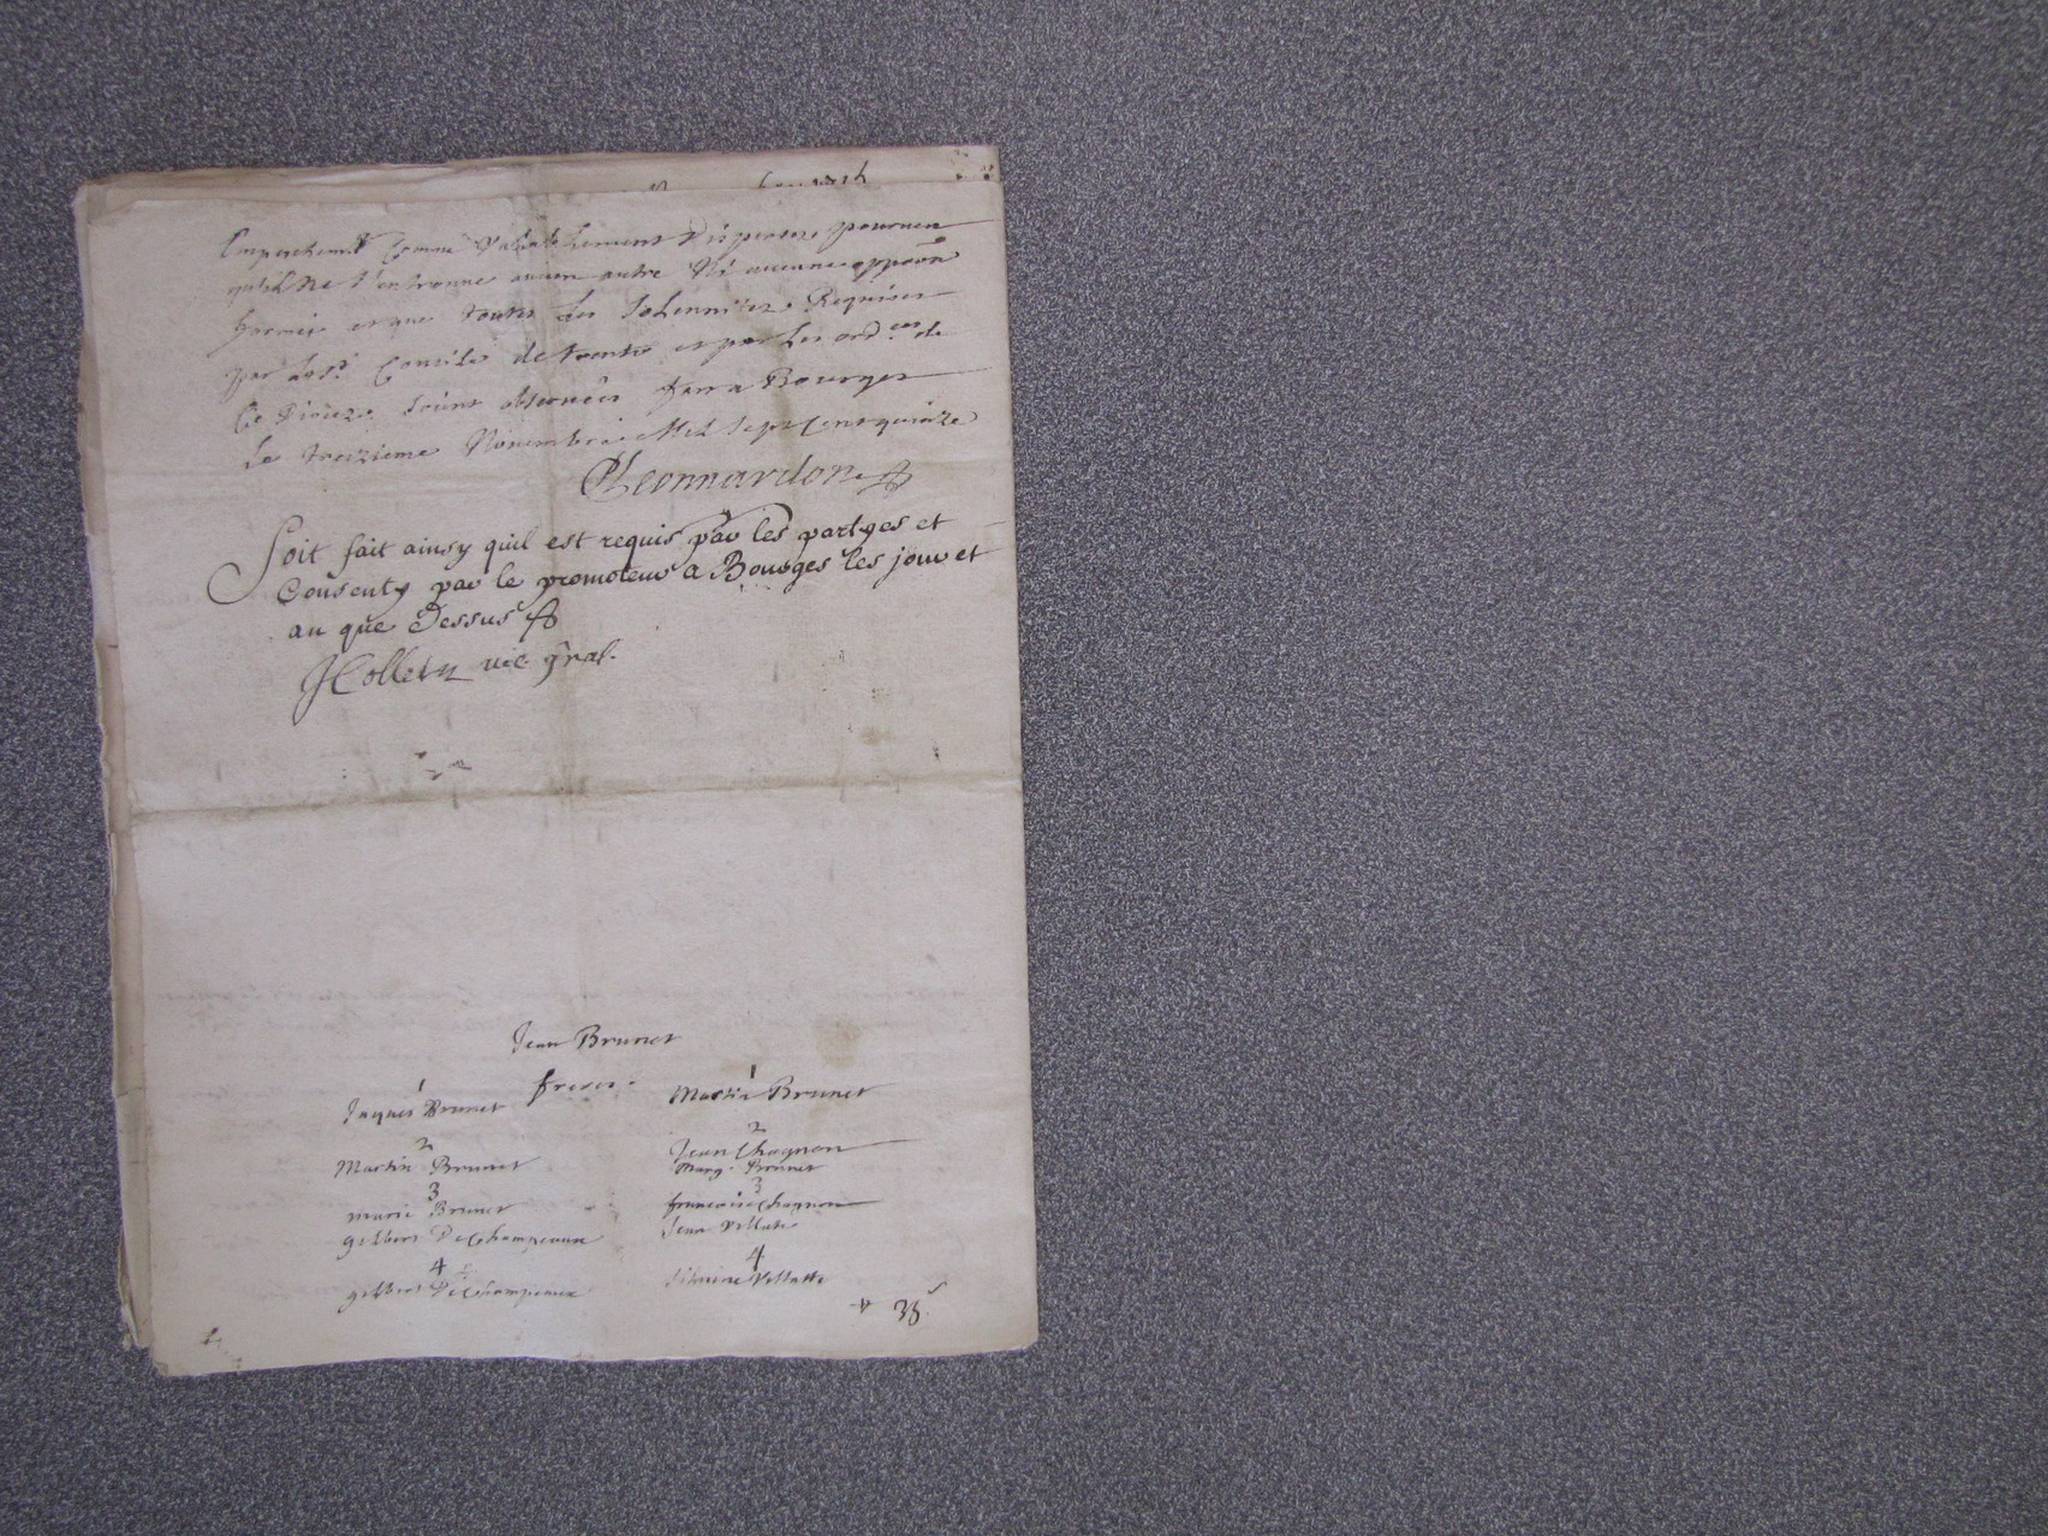 Empechemt Comme Valablement dispensez pourveu
qu'il ne s'en trouve aucun autre Ni aucune opposõn
formée et que toutes les solennitez Requises
par le St Concile de trente et par les ord.ces de
Ce Dioceze soient observées fait a Bourges
Le treizieme Novembre Mil sept Cent quinze
Leonnardon
Soit fait ainsy quil est requis par les partyes et
Consenty par le promoteur a Bourges les jour et
an que Dessus
JColletu vic. gñal.
Jean Brunet
freres
1 1
Jaques Brunet Martin Brunet
2 2
Martin Brunet Jean Chagnon
Marg. Brunet
3 3
marie Brunet francoise Chagnon
gilbert DeChampeaux Jean Villatte
4 4
gilbert DeChampeaux Silvine Villatte